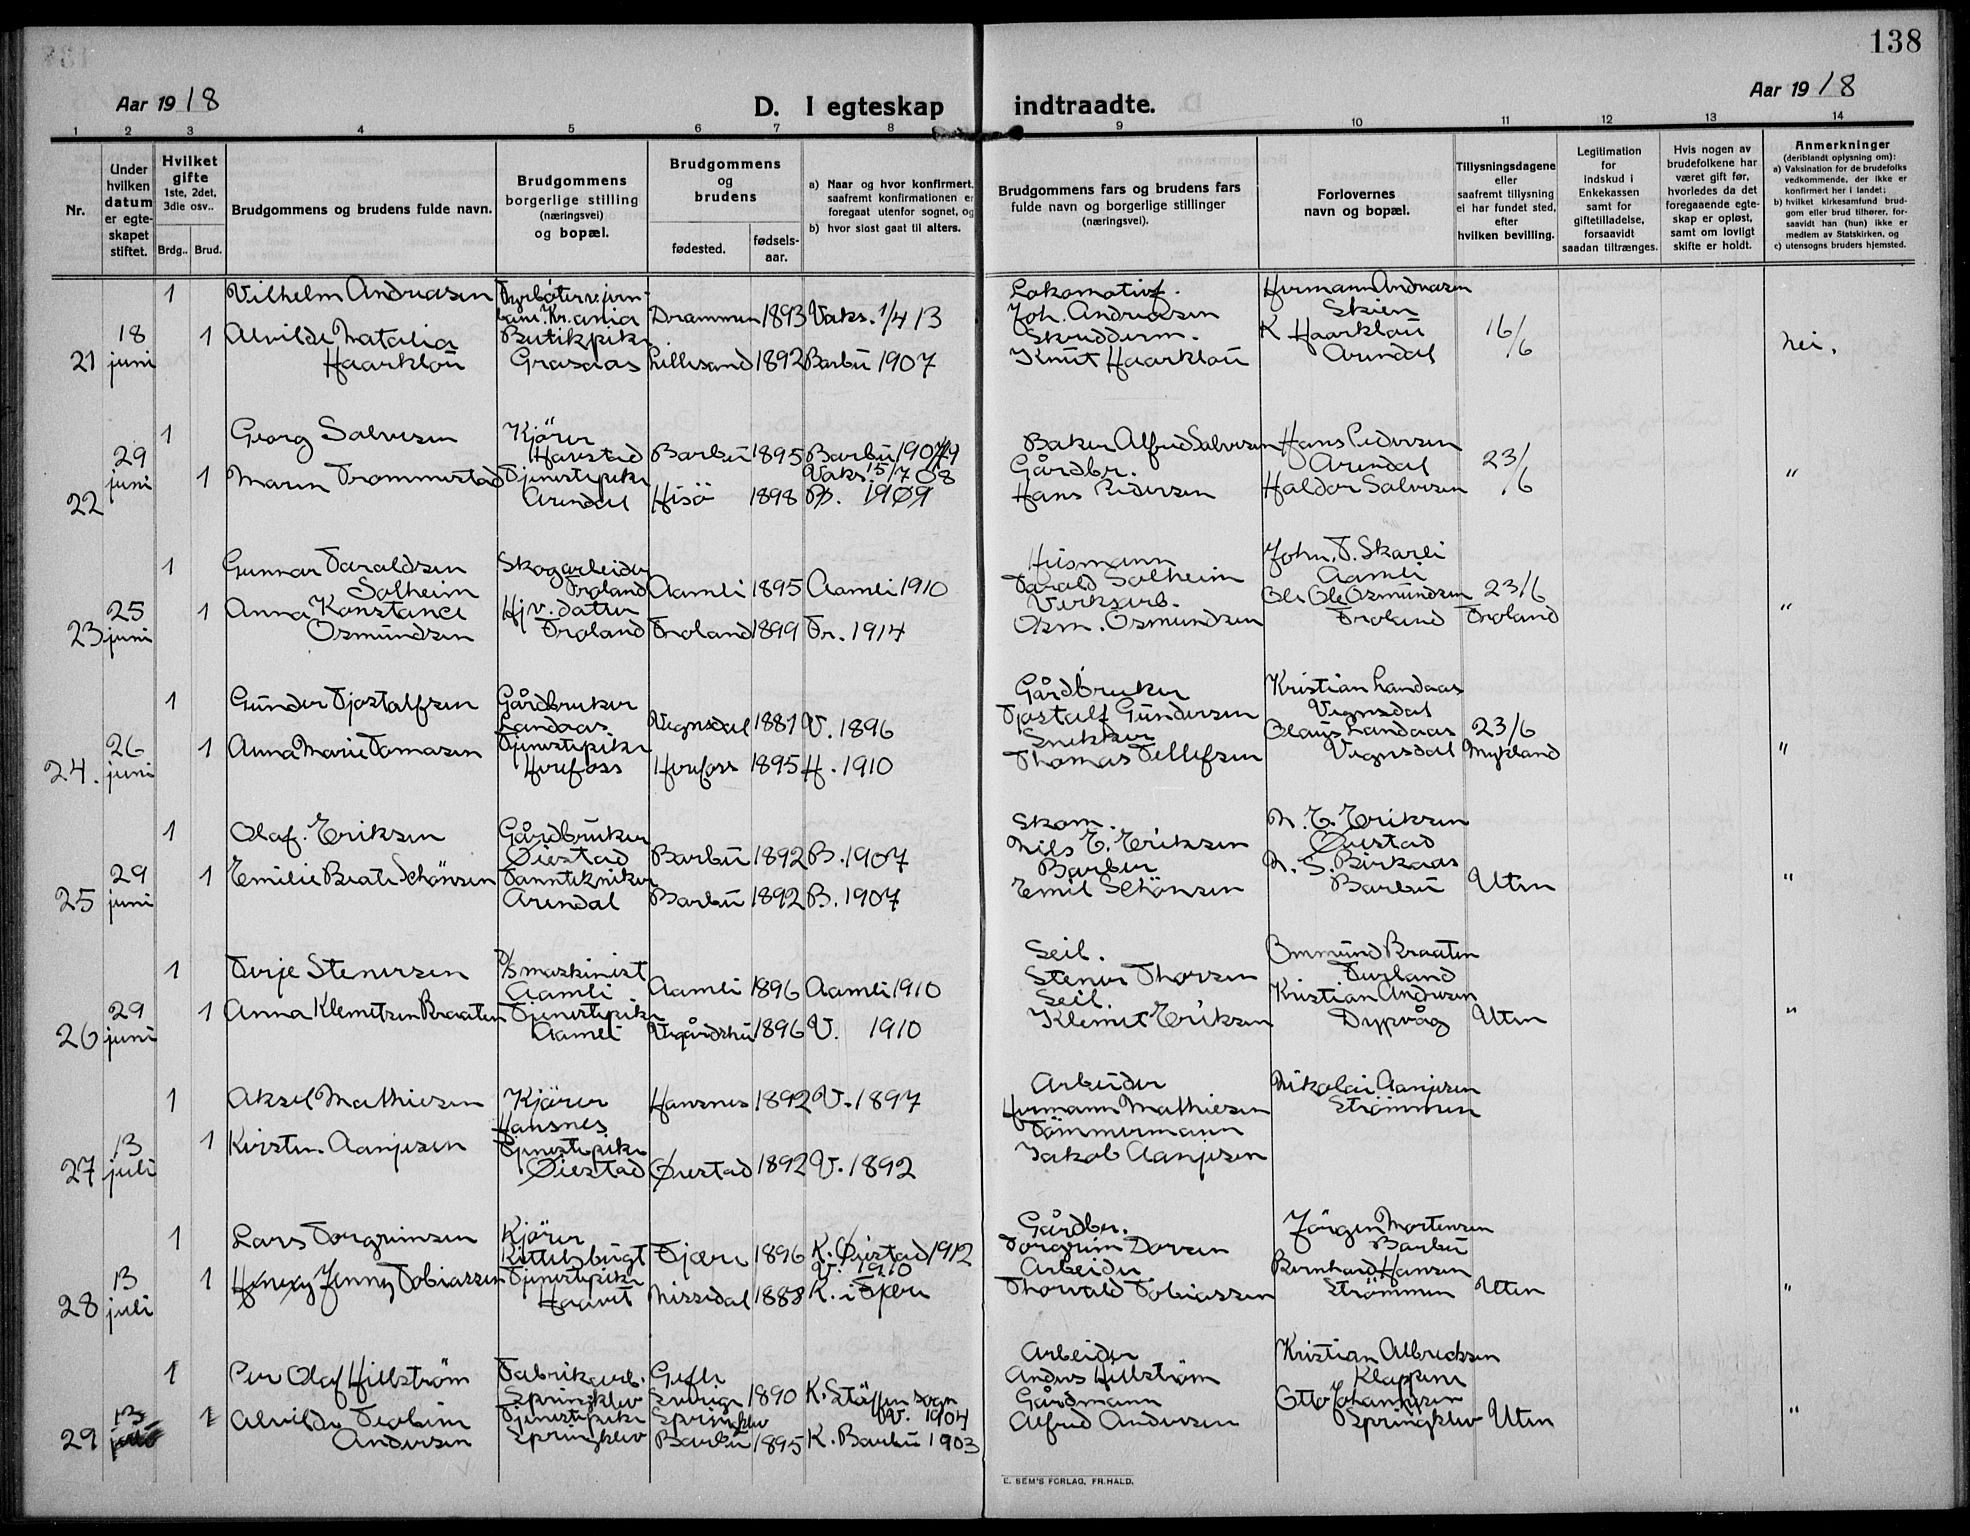 138
Aar 1918
D. I egteskap indtraadte.
Aar 1918
1 2 3 4 5 6 7 8 9 10 11 12 13 14
Nr.
Under hvilken datum er egte- skapet stiftet.
Hvilket gifte
1ste, 2det, 3die osv..
Brdg.. Brud.
Brudgommens og brudens fulde navn.
Brudgommens borgerlige stilling (næringsvei) og bopæl.
Brudgommens og brudens
fødested.
fødsels- aar.
a) Naar og hvor konfirmert, saafremt konfirmationen er foregaat utenfor sognet, og
b) hvor sidst gaat til alters.
Brudgommens fars og brudens fars fulde navn og borgerlige stillinger (næringsvei).
Forlovernes navn og bopæl.
Tillysningsdagene eller saafremt tillysning ei har fundet sted, efter hvilken bevilling.
Legitimation for indskud i Enkekassen samt for giftetilladelse, forsaavidt saadan tiltrænges.
Hvis nogen av brudefolkene har været gift før, hvorledes da det foregaaende egte- skap er opløst, samt om lovligt skifte er holdt.
Anmerkninger
(deriblandt oplysning om):
a) Vaksination for de brudefolks vedkommende, der ikke er konfirmert her i landet;
b) hvilket kirkesamfund brud- gom eller brud tilhører, for- saavidt han (hun) ikke er medlem av Statskirken, og
c) utensogns bruders hjemsted.
1 Vilhelm Andreasen Fyrböter v. jern- Lokomotivf. Hermann Andreasen
bane. Kr.ania Drammen 1893 Vaks. 1/4 13 Joh. Andreasen Skien
18 1 Alvilde Natalia Butikpike Skredderm. K Haarklou 16/6
21 juni Haarklou Grasaas Lillesand 1892 Barbu 1907 Knut Haarklou Arendal nei.
1 Georg Salvesen Kjörer Baker Alfred Salvesen Hans Pedersen
29 Harstad Barbu 1895 Barbu 1907 Arendal 23/6
juni 1 Maren Trommestad Tjenestepike Vaks. 15/7 08 Gårdbr.
22 Arendal Hisö 1898 B. 1909 Hans Pedersen Haldor Salvesen "
1 Gunnar Taraldsen Skogarbeider Husmann John. T. Skarli
Solheim Froland Aamli 1895 Aamli 1910 Tarald Solheim Aamli
25 1 Anna Konstance Hj v. datter Verksarb. Ole Osmundsen 23/6
23 juni Osmundsen Froland Froland 1899 Fr. 1914 Osm. Osmundsen Froland Froland "
1 Gunder Tjostalfsen Gårdbruker Gårdbruker Kristian Landaas
Landaas Vegusdal 1881 V. 1896 Tjostalf Gundersen Vegusdal
26 1 Anna Marie Tomasen Tjenestepike Snekker Olaus Landaas 23/6
24. juni Herefoss Herefoss 1895 H. 1910 Thomas Tellefsen Vegusdal Mykland "
1 Olaf. Eriksen Gårdbruker Skom. N. E. Eriksen
Øiestad Barbu 1892 B. 1907 Nils E. Eriksen Øiestad
29 1 Emilie Beate Schönsen Tanntekniker Barber N. S. Birkaas
25 juni Arendal Barbu 1892 B. 1907 Emil Schönsen Barbu Uten "
1 Terje Stenersen D/S maskinist Seil. Ommund Braaten
Aamli Aamli 1896 Aamli 1910 Stener Thorsen
29 1 Anna Klemetsen Braaten Tjenestepike Seil. Kristian Andersen
26 juni Aamli Vegårdshei 1896 V. 1910 Klemet Eriksen Dypvåg Uten "
1 Aksel Mathiesen Kjörer Hansnes 1892 V. 1897 Arbeider Nikolai Aanjesen
Hansnes Hermann Mathiesen Strömmen
13 1 Kirsten Aanjesen Tjenestepike Tömmermann
27 juli Øiestad Øiestad 1892 V. 1892 Jakob Aanjesen
1 Lars Torgrimsen Kjörer Gårdbr. Jörgen Mortensen
Kittelsbugt Fjære 1896 K. Øiestad 1912 Torgrim Dorsen Barbu
13 1 Jenny Tobiassen Tjenestepike V. 1910 Arbeider Bernhard Hansen
28 juli Haavet Nissedal 1888 K. i Fjære Thorvald Tobiassen Strömmen Uten "
1 Per Olaf Hillström Fabrikarb. Gefle Arbeider Kristian Albrechsen
Springklev Sverige 1890 K. Staffen sogn Anders Hillström Klappene
13 1 Alvilde Teoline Tjenestepike Springklev V. 1904 Gårdmann Otto Johannesen
29 Andersen Springklev Barbu 1895 K. Barbu 1903 Alfred Andersen Springklev Uten "
E. SEM'S FORLAG, FR.HALD.